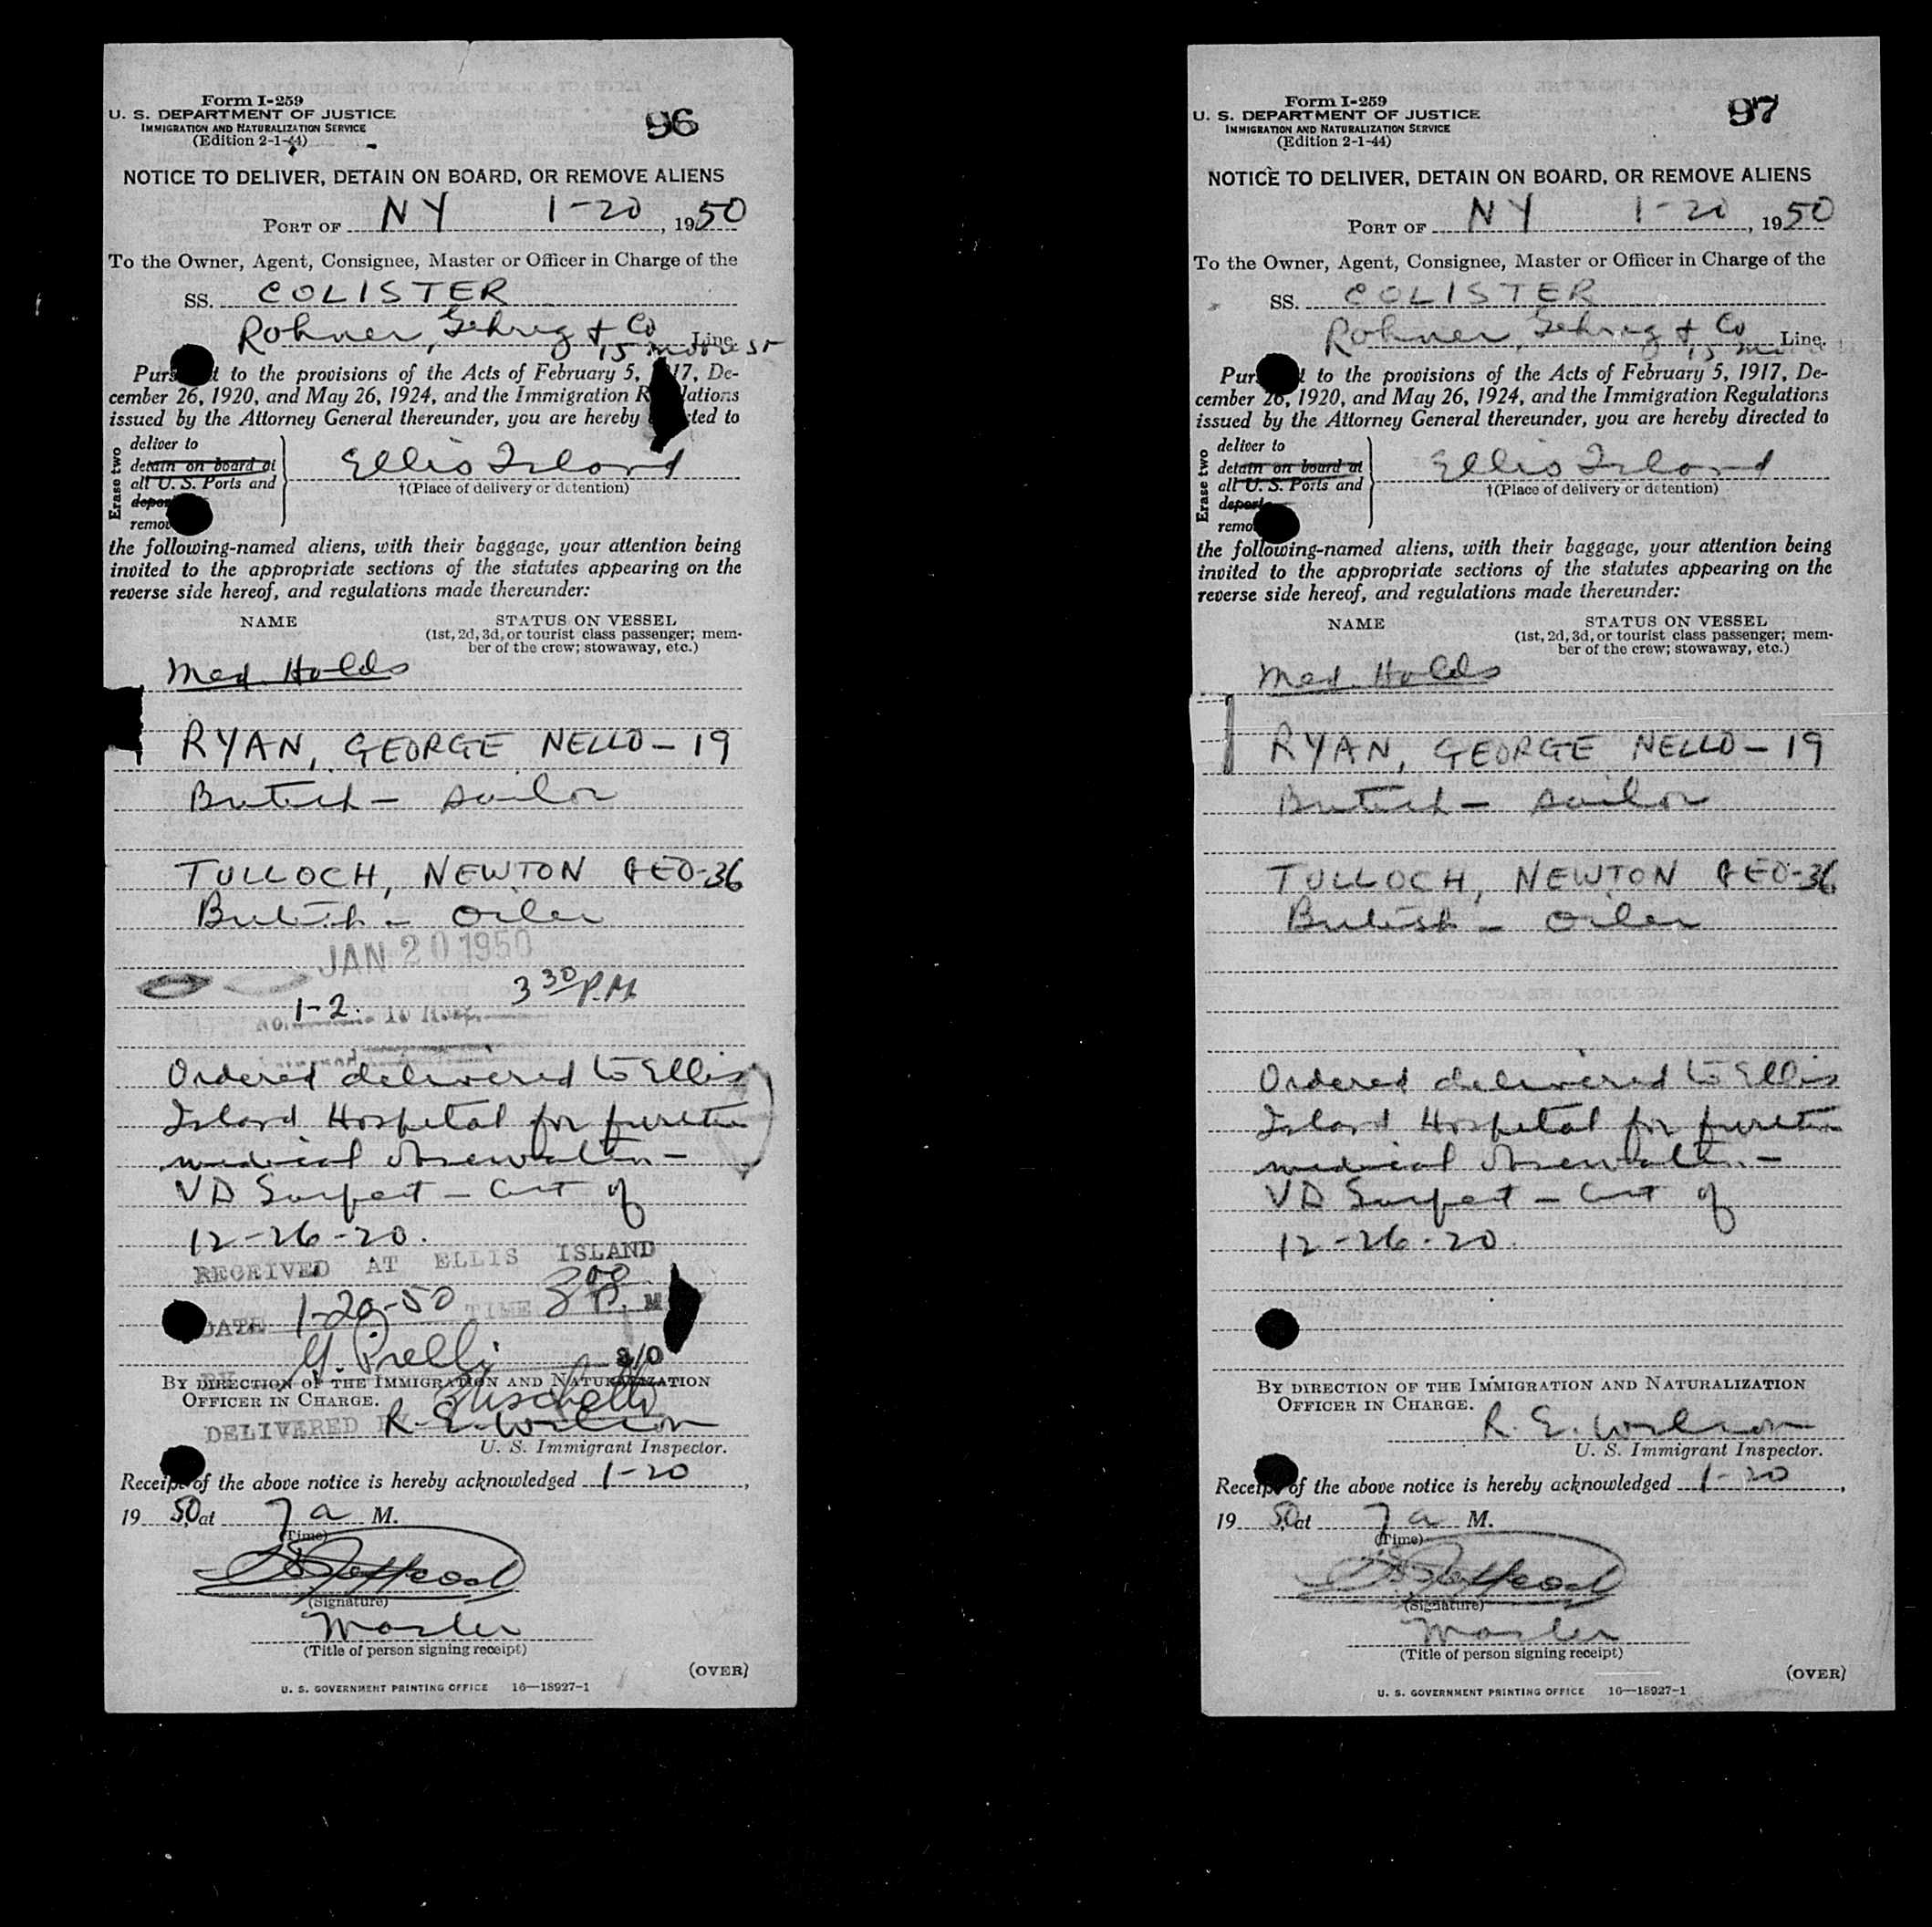 Form I-259
U. S. DEPARTMENT OF JUSTICE
IMMIGRATION AND NATURALIZATION SERVICE
(Edition 2-1-44)
96
NOTICE TO DELIVER, DETAIN ON BOARD, OR REMOVE ALIENS
PORT OF NY 1-20, 1950
To the Owner, Agent, Consignee, Master or Officer in Charge of the
SS. COLISTER
Rohner, Gehrig & Co Line.
15 Moore St
Pursuant to the provisions of the Acts of February 5, 1917, De-
cember 26, 1920, and May 26, 1924, and the Immigration Regulations
issued by the Attorney General thereunder, you are hereby directed to
Erase two
deliver to
detain on board at
all U. S. Ports and
deport
remove
Ellis Island
†(Place of delivery or detention)
the following-named aliens, with their baggage, your attention being
invited to the appropriate sections of the statutes appearing on the
reverse side hereof, and regulations made thereunder:
NAME STATUS ON VESSEL
(1st, 2d, 3d, or tourist class passenger; mem-
ber of the crew; stowaway, etc.)
Med. Holds
RYAN, GEORGE NELLO - 19
British - sailor
TULLOCH, NEWTON GEO-36
British - Oiler
JAN 20 1950
3 30 P.M.
No. 1-2. To Hosp.
Ordered delivered to Ellis
Island Hospital for further
medical observation -
VD Suspect - Act of
12-26-20.
RECEIVED AT ELLIS ISLAND
DATE 1-20-50 TIME 3 00 P. M
BY
By DIRECTION OF THE IMMIGRATION AND NATURALIZATION
OFFICER IN CHARGE.
DELIVERED BY
R. E. Wilson
U. S. Immigrant Inspector.
Receipt of the above notice is hereby acknowledged 1-20,
1950 at 7 a M.
(Time)
(Signature)
Master
(Title of person signing receipt)
(OVER)
U. S. GOVERNMENT PRINTING OFFICE 16—18927-1
Form I-259
U. S. DEPARTMENT OF JUSTICE
IMMIGRATION AND NATURALIZATION SERVICE
(Edition 2-1-44)
97
NOTICE TO DELIVER, DETAIN ON BOARD, OR REMOVE ALIENS
PORT OF NY 1-20, 1950
To the Owner, Agent, Consignee, Master or Officer in Charge of the
SS. COLISTER
Rohner, Gehrig & Co Line.
15
Pursuant to the provisions of the Acts of February 5, 1917, De-
cember 26, 1920, and May 26, 1924, and the Immigration Regulations
issued by the Attorney General thereunder, you are hereby directed to
Erase two
deliver to
detain on board at
all U. S. Ports and
deport
remove
Ellis Island
†(Place of delivery or detention)
the following-named aliens, with their baggage, your attention being
invited to the appropriate sections of the statutes appearing on the
reverse side hereof, and regulations made thereunder:
NAME STATUS ON VESSEL
(1st, 2d, 3d, or tourist class passenger; mem-
ber of the crew; stowaway, etc.)
Med. Holds
RYAN, GEORGE NELLO - 19
British - sailor
TULLOCH, NEWTON GEO-36
British - Oiler
Ordered delivered to Ellis
Island Hospital for further
medical observation. -
VD Suspect - Act of
12-26-20.
By DIRECTION OF THE IMMIGRATION AND NATURALIZATION
OFFICER IN CHARGE.
R. E. Wilson
U. S. Immigrant Inspector.
Receipt of the above notice is hereby acknowledged 1-20,
1950 at 7 a M.
(Time)
(Signature)
Master
(Title of person signing receipt)
(OVER)
U. S. GOVERNMENT PRINTING OFFICE 16—18927-1